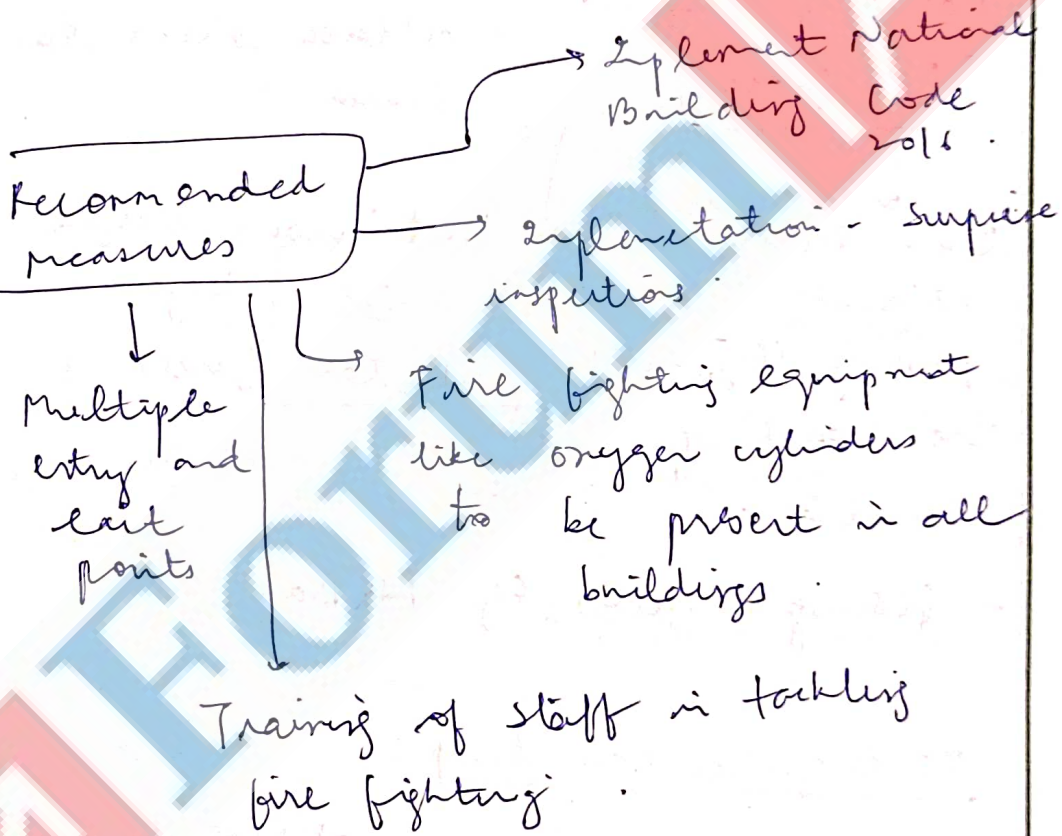 Implement National
Building Code
2016.
Recommended
measures
Implementation - Surprise
inspections.
Fire fighting equipment
like oxygen cylinders
to be present in all
buildings.
Multiple
entry and
exit
points
Training of staff in tackling
fire fighting.
Forum